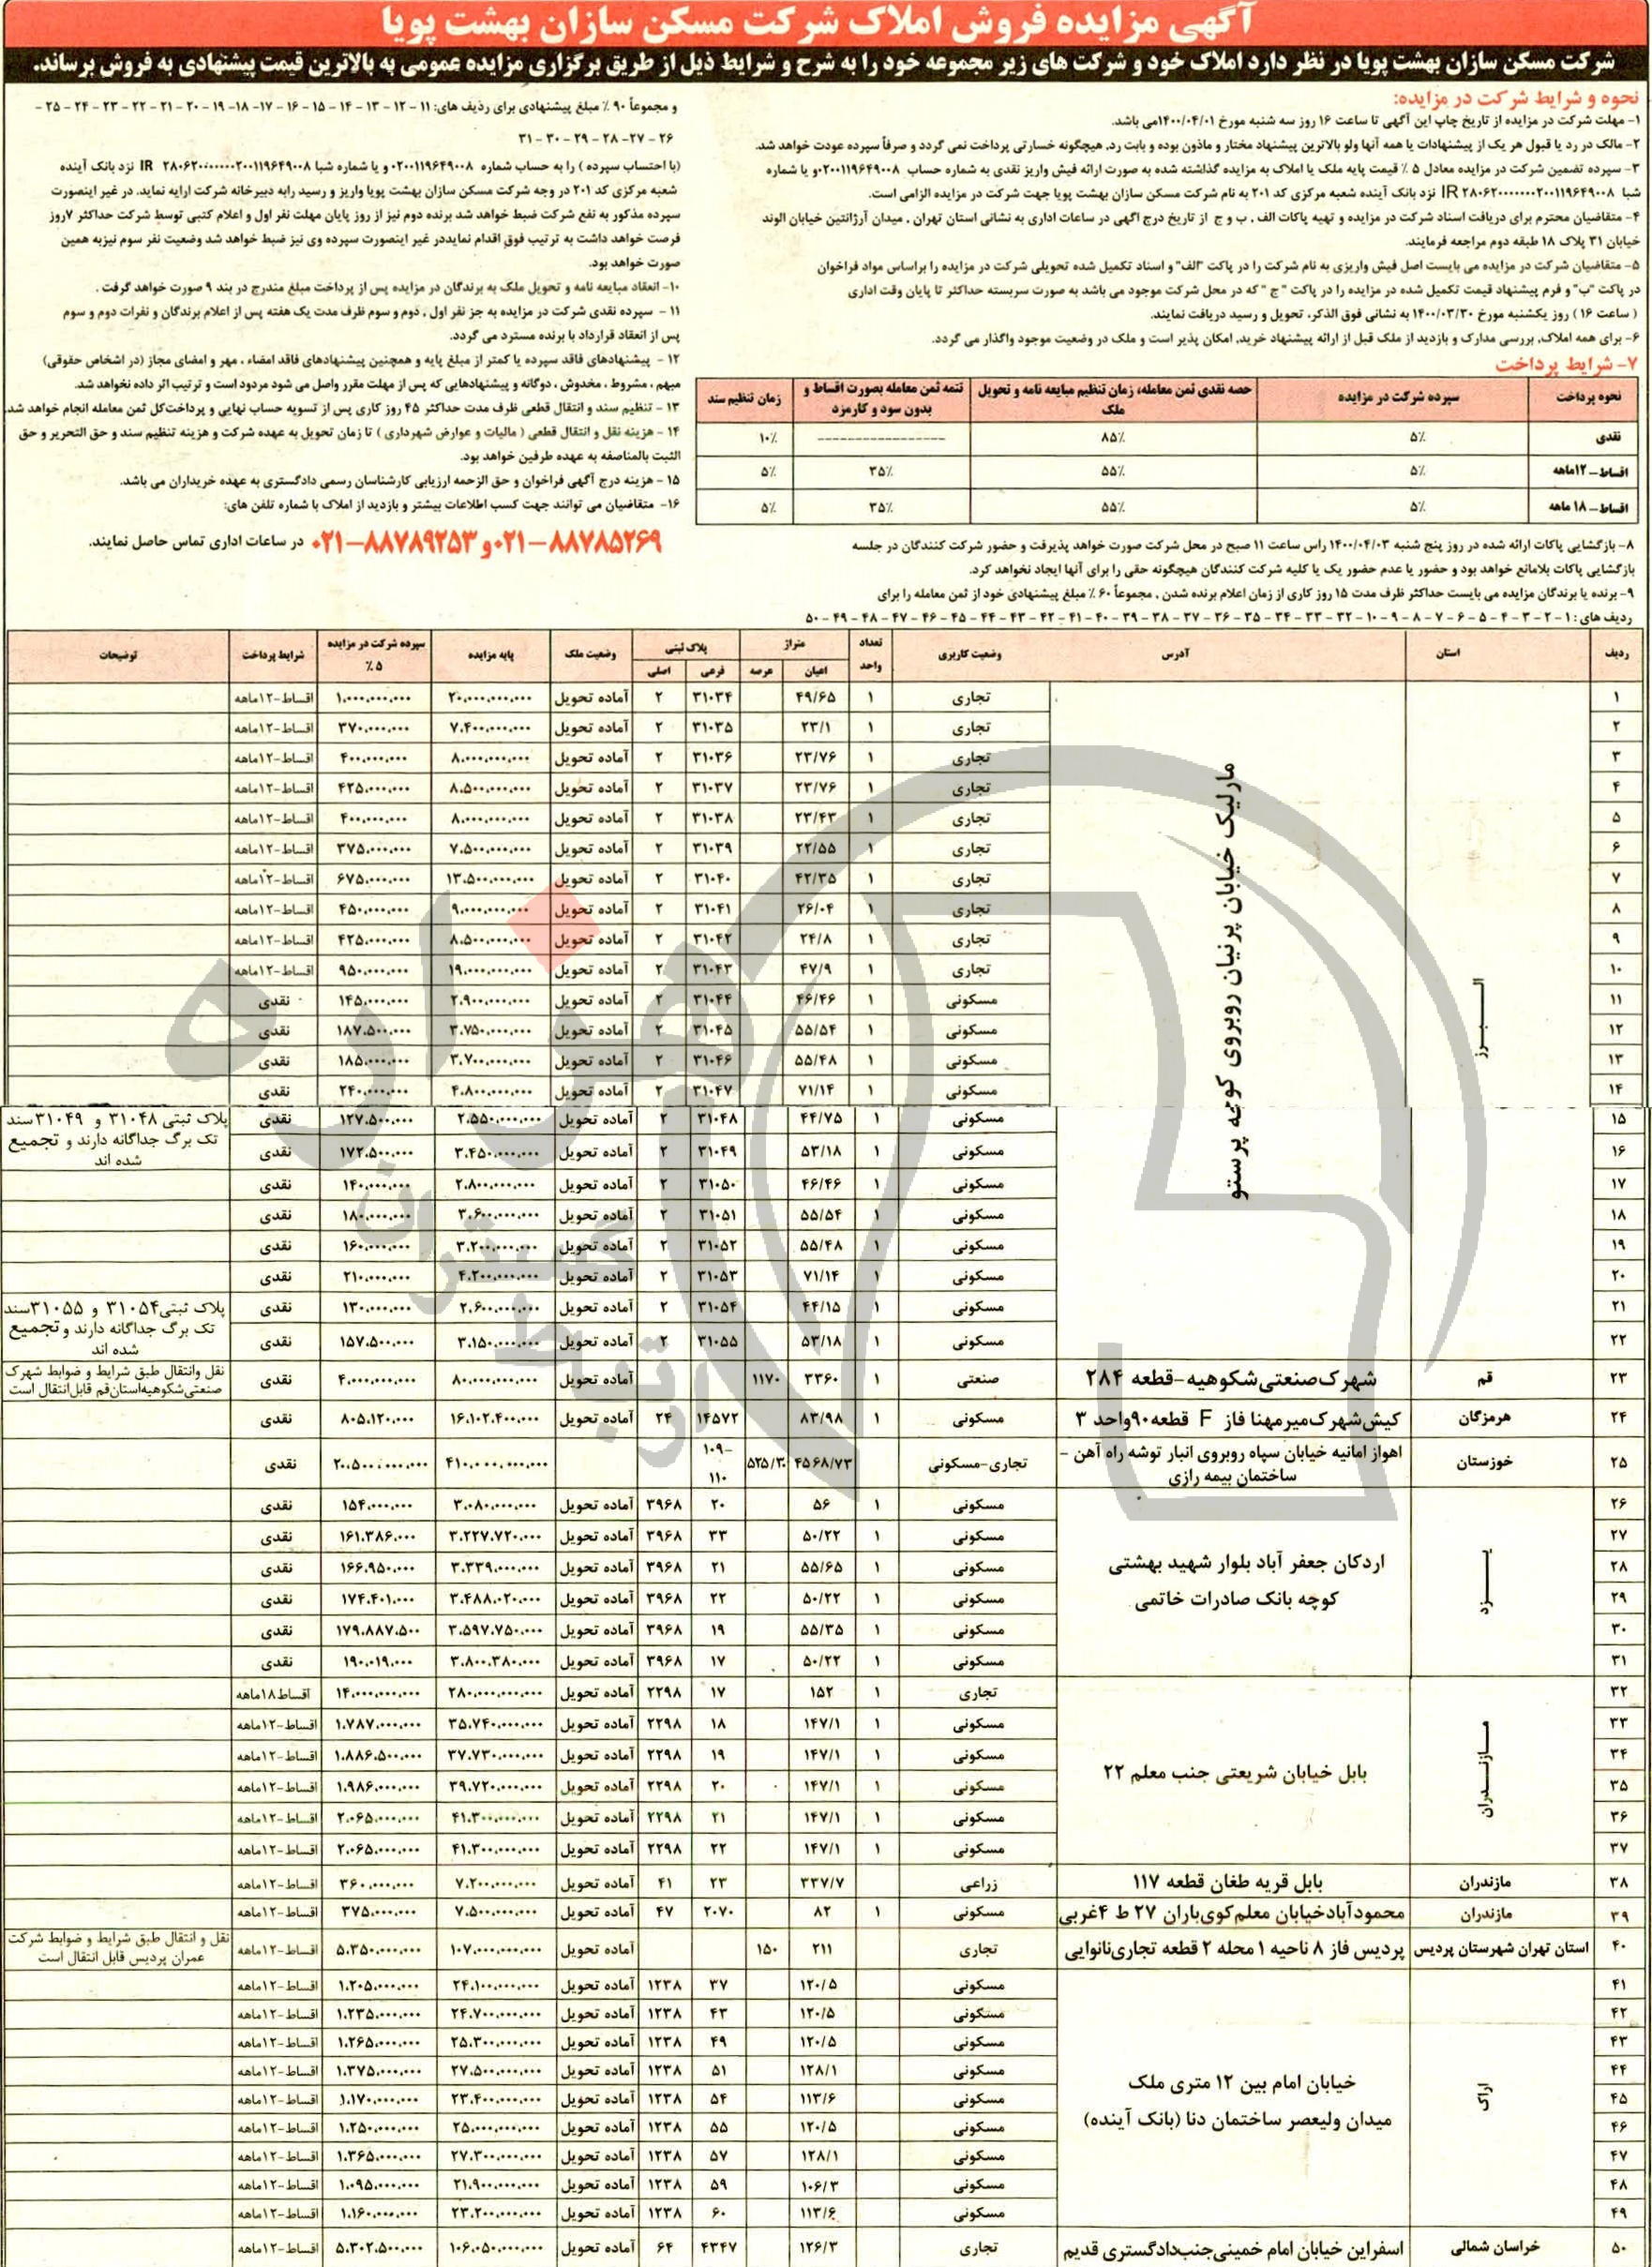 آگهی مزایده فروش املاک شرکت مسکن سازان بهشت پویا
شرکت مسکن سازان بهشت پویا در نظر دارد املاک خود و شرکت های زیر مجموعه خود را به شرح و شرایط ذیل از طریق برگزاری مزایده عمومی به بالاترین قیمت پیشنهادی به فروش برساند.
نحوه و شرایط شرکت در مزایده:
۱- مهلت شرکت در مزایده از تاریخ چاپ این آگهی تا ساعت ۱۶ روز سه شنبه مورخ ۱۴۰۰/۰۴/۰۱می باشد.
۲- مالک در رد یا قبول هر یک از پیشنهادات یا همه آنها ولو بالاترین پیشنهاد مختار و ماذون بوده و بابت رد، هیچگونه خسارتی پرداخت نمی گردد و صرفاً سپرده عودت خواهد شد.
۳- سپرده تضمین شرکت در مزایده معادل ۵ ٪ قیمت پایه ملک یا املاک به مزایده گذاشته شده به صورت ارائه فیش واریز نقدی به شماره حساب ۰۲۰۰۱۱۹۶۴۹۰۰۸و یا شماره
شبا IR ۲۸۰۶۲۰۰۰۰۰۰۰۲۰۰۱۱۹۶۴۹۰۰۸ نزد بانک آینده شعبه مرکزی کد ۲۰۱ به نام شرکت مسکن سازان بهشت پویا جهت شرکت در مزایده الزامی است.
۴- متقاضیان محترم برای دریافت اسناد شرکت در مزایده و تهیه پاکات الف ، ب و ج از تاریخ درج آگهی در ساعات اداری به نشانی استان تهران ، میدان آرژانتین خیابان الوند
خیابان ۳۱ پلاک ۱۸ طبقه دوم مراجعه فرمایند.
۵- متقاضیان شرکت در مزایده می بایست اصل فیش واریزی به نام شرکت را در پاکت "الف" و اسناد تکمیل شده تحویلی شرکت در مزایده را براساس مواد فراخوان
در پاکت "ب" و فرم پیشنهاد قیمت تکمیل شده در مزایده را در پاکت " ج " که در محل شرکت موجود می باشد به صورت سربسته حداکثر تا پایان وقت اداری
( ساعت ۱۶ ) روز یکشنبه مورخ ۱۴۰۰/۰۳/۳۰ به نشانی فوق الذکر، تحویل و رسید دریافت نمایند.
۶- برای همه املاک، بررسی مدارک و بازدید از ملک قبل از ارائه پیشنهاد خرید، امکان پذیر است و ملک در وضعیت موجود واگذار می گردد.
۷- شرایط پرداخت
نحوه پرداخت | سپرده شرکت در مزایده | حصه نقدی ثمن معامله، زمان تنظیم مبایعه نامه و تحویل ملک | تتمه ثمن معامله بصورت اقساط و بدون سود و کارمزد | زمان تنظیم سند
نقدی | ۵٪ | ۸۵٪ | ----------------- | ۱۰٪
اقساط–۱۲ماهه | ۵٪ | ۵۵٪ | ۳۵٪ | ۵٪
اقساط– ۱۸ ماهه | ۵٪ | ۵۵٪ | ۳۵٪ | ۵٪
۸- بازگشایی پاکات ارائه شده در روز پنج شنبه ۱۴۰۰/۰۴/۰۳ راس ساعت ۱۱ صبح در محل شرکت صورت خواهد پذیرفت و حضور شرکت کنندگان در جلسه
بازگشایی پاکات بلامانع خواهد بود و حضور یا عدم حضور یک یا کلیه شرکت کنندگان هیچگونه حقی را برای آنها ایجاد نخواهد کرد.
۹- برنده یا برندگان مزایده می بایست حداکثر ظرف مدت ۱۵ روز کاری از زمان اعلام برنده شدن ، مجموعاً ۶۰ ٪ مبلغ پیشنهادی خود از ثمن معامله را برای
ردیف های : ۱-۲-۳-۴-۵-۶-۷-۸-۹-۱۰-۳۲-۳۳-۳۴-۳۵-۳۶-۳۷-۳۸-۳۹-۴۰-۴۱-۴۲-۴۳-۴۴-۴۵-۴۶-۴۷-۴۸-۴۹-۵۰
و مجموعاً ۹۰ ٪ مبلغ پیشنهادی برای ردیف های: ۱۱-۱۲-۱۳-۱۴-۱۵-۱۶-۱۷-۱۸-۱۹-۲۰-۲۱-۲۲-۲۳-۲۴-۲۵-
۲۶-۲۷-۲۸-۲۹-۳۰-۳۱
(با احتساب سپرده ) را به حساب شماره ۰۲۰۰۱۱۹۶۴۹۰۰۸ و یا شماره شبا IR ۲۸۰۶۲۰۰۰۰۰۰۰۲۰۰۱۱۹۶۴۹۰۰۸ نزد بانک آینده
شعبه مرکزی کد ۲۰۱ در وجه شرکت مسکن سازان بهشت پویا واریز و رسید رابه دبیرخانه شرکت ارایه نماید. در غیر اینصورت
سپرده مذکور به نفع شرکت ضبط خواهد شد برنده دوم نیز از روز پایان مهلت نفر اول و اعلام کتبی توسط شرکت حداکثر ۷روز
فرصت خواهد داشت به ترتیب فوق اقدام نمایددر غیر اینصورت سپرده وی نیز ضبط خواهد شد وضعیت نفر سوم نیزبه همین
صورت خواهد بود.
۱۰- انعقاد مبایعه نامه و تحویل ملک به برندگان در مزایده پس از پرداخت مبلغ مندرج در بند ۹ صورت خواهد گرفت .
۱۱ - سپرده نقدی شرکت در مزایده به جز نفر اول ، دوم و سوم ظرف مدت یک هفته پس از اعلام برندگان و نفرات دوم و سوم
پس از انعقاد قرارداد با برنده مسترد می گردد.
۱۲ - پیشنهادهای فاقد سپرده یا کمتر از مبلغ پایه و همچنین پیشنهادهای فاقد امضاء ، مهر و امضای مجاز (در اشخاص حقوقی)
مبهم ، مشروط ، مخدوش ، دوگانه و پیشنهادهایی که پس از مهلت مقرر واصل می شود مردود است و ترتیب اثر داده نخواهد شد.
۱۳ - تنظیم سند و انتقال قطعی ظرف مدت حداکثر ۴۵ روز کاری پس از تسویه حساب نهایی و پرداخت‌کل ثمن معامله انجام خواهد شد.
۱۴ - هزینه نقل و انتقال قطعی ( مالیات و عوارض شهرداری ) تا زمان تحویل به عهده شرکت و هزینه تنظیم سند و حق التحریر و حق
الثبت بالمناصفه به عهده طرفین خواهد بود.
۱۵ - هزینه درج آگهی فراخوان و حق الزحمه ارزیابی کارشناسان رسمی دادگستری به عهده خریداران می باشد.
۱۶- متقاضیان می توانند جهت کسب اطلاعات بیشتر و بازدید از املاک با شماره تلفن های:
۰۲۱-۸۸۷۸۵۲۶۹و ۰۲۱-۸۸۷۸۹۲۵۳ در ساعات اداری تماس حاصل نمایند.
ردیف | استان | آدرس | وضعیت کاربری | تعداد واحد | متراژ | پلاک ثبتی | وضعیت ملک | پایه مزایده | سپرده شرکت در مزایده ۵ ٪ | شرایط پرداخت | توضیحات
اعیان | عرصه | فرعی | اصلی
البرز
مارلیک خیابان پرنیان روبروی کوچه پرستو
۱ | تجاری | ۱ | ۴۹/۶۵ | ۳۱۰۳۴ | ۲ | آماده تحویل | ۲۰،۰۰۰،۰۰۰،۰۰۰ | ۱،۰۰۰،۰۰۰،۰۰۰ | اقساط-۱۲ماهه
۲ | تجاری | ۱ | ۲۳/۱ | ۳۱۰۳۵ | ۲ | آماده تحویل | ۷،۴۰۰،۰۰۰،۰۰۰ | ۳۷۰،۰۰۰،۰۰۰ | اقساط-۱۲ماهه
۳ | تجاری | ۱ | ۲۳/۷۶ | ۳۱۰۳۶ | ۲ | آماده تحویل | ۸،۰۰۰،۰۰۰،۰۰۰ | ۴۰۰،۰۰۰،۰۰۰ | اقساط-۱۲ماهه
۴ | تجاری | ۱ | ۲۳/۷۶ | ۳۱۰۳۷ | ۲ | آماده تحویل | ۸،۵۰۰،۰۰۰،۰۰۰ | ۴۲۵،۰۰۰،۰۰۰ | اقساط-۱۲ماهه
۵ | تجاری | ۱ | ۲۳/۴۳ | ۳۱۰۳۸ | ۲ | آماده تحویل | ۸،۰۰۰،۰۰۰،۰۰۰ | ۴۰۰،۰۰۰،۰۰۰ | اقساط-۱۲ماهه
۶ | تجاری | ۱ | ۲۲/۵۵ | ۳۱۰۳۹ | ۲ | آماده تحویل | ۷،۵۰۰،۰۰۰،۰۰۰ | ۳۷۵،۰۰۰،۰۰۰ | اقساط-۱۲ماهه
۷ | تجاری | ۱ | ۴۲/۳۵ | ۳۱۰۴۰ | ۲ | آماده تحویل | ۱۳،۵۰۰،۰۰۰،۰۰۰ | ۶۷۵،۰۰۰،۰۰۰ | اقساط-۱۲ماهه
۸ | تجاری | ۱ | ۲۶/۰۴ | ۳۱۰۴۱ | ۲ | آماده تحویل | ۹،۰۰۰،۰۰۰،۰۰۰ | ۴۵۰،۰۰۰،۰۰۰ | اقساط-۱۲ماهه
۹ | تجاری | ۱ | ۲۴/۸ | ۳۱۰۴۲ | ۲ | آماده تحویل | ۸،۵۰۰،۰۰۰،۰۰۰ | ۴۲۵،۰۰۰،۰۰۰ | اقساط-۱۲ماهه
۱۰ | تجاری | ۱ | ۴۷/۹ | ۳۱۰۴۳ | ۲ | آماده تحویل | ۱۹،۰۰۰،۰۰۰،۰۰۰ | ۹۵۰،۰۰۰،۰۰۰ | اقساط-۱۲ماهه
۱۱ | مسکونی | ۱ | ۴۶/۴۶ | ۳۱۰۴۴ | ۲ | آماده تحویل | ۲،۹۰۰،۰۰۰،۰۰۰ | ۱۴۵،۰۰۰،۰۰۰ | نقدی
۱۲ | مسکونی | ۱ | ۵۵/۵۴ | ۳۱۰۴۵ | ۲ | آماده تحویل | ۳،۷۵۰،۰۰۰،۰۰۰ | ۱۸۷،۵۰۰،۰۰۰ | نقدی
۱۳ | مسکونی | ۱ | ۵۵/۴۸ | ۳۱۰۴۶ | ۲ | آماده تحویل | ۳،۷۰۰،۰۰۰،۰۰۰ | ۱۸۵،۰۰۰،۰۰۰ | نقدی
۱۴ | مسکونی | ۱ | ۷۱/۱۴ | ۳۱۰۴۷ | ۲ | آماده تحویل | ۴،۸۰۰،۰۰۰،۰۰۰ | ۲۴۰،۰۰۰،۰۰۰ | نقدی
۱۵ | مسکونی | ۱ | ۴۴/۷۵ | ۳۱۰۴۸ | ۲ | آماده تحویل | ۲،۵۵۰،۰۰۰،۰۰۰ | ۱۲۷،۵۰۰،۰۰۰ | نقدی | پلاک ثبتی ۳۱۰۴۸ و ۳۱۰۴۹سند تک برگ جداگانه دارند و تجمیع شده اند
۱۶ | مسکونی | ۱ | ۵۳/۱۸ | ۳۱۰۴۹ | ۲ | آماده تحویل | ۳،۴۵۰،۰۰۰،۰۰۰ | ۱۷۲،۵۰۰،۰۰۰ | نقدی
۱۷ | مسکونی | ۱ | ۴۶/۴۶ | ۳۱۰۵۰ | ۲ | آماده تحویل | ۲،۸۰۰،۰۰۰،۰۰۰ | ۱۴۰،۰۰۰،۰۰۰ | نقدی
۱۸ | مسکونی | ۱ | ۵۵/۵۴ | ۳۱۰۵۱ | ۲ | آماده تحویل | ۳،۶۰۰،۰۰۰،۰۰۰ | ۱۸۰،۰۰۰،۰۰۰ | نقدی
۱۹ | مسکونی | ۱ | ۵۵/۴۸ | ۳۱۰۵۲ | ۲ | آماده تحویل | ۳،۲۰۰،۰۰۰،۰۰۰ | ۱۶۰،۰۰۰،۰۰۰ | نقدی
۲۰ | مسکونی | ۱ | ۷۱/۱۴ | ۳۱۰۵۳ | ۲ | آماده تحویل | ۴،۲۰۰،۰۰۰،۰۰۰ | ۲۱۰،۰۰۰،۰۰۰ | نقدی
۲۱ | مسکونی | ۱ | ۴۴/۱۵ | ۳۱۰۵۴ | ۲ | آماده تحویل | ۲،۶۰۰،۰۰۰،۰۰۰ | ۱۳۰،۰۰۰،۰۰۰ | نقدی | پلاک ثبتی۳۱۰۵۴ و ۳۱۰۵۵سند تک برگ جداگانه دارند و تجمیع شده اند
۲۲ | مسکونی | ۱ | ۵۳/۱۸ | ۳۱۰۵۵ | ۲ | آماده تحویل | ۳،۱۵۰،۰۰۰،۰۰۰ | ۱۵۷،۵۰۰،۰۰۰ | نقدی
۲۳ | قم | شهرک صنعتی شکوهیه-قطعه ۲۸۴ | صنعتی | ۱ | ۳۳۶۰ | ۱۱۷۰ | آماده تحویل | ۸۰،۰۰۰،۰۰۰،۰۰۰ | ۴،۰۰۰،۰۰۰،۰۰۰ | نقدی | نقل وانتقال طبق شرایط و ضوابط شهرک صنعتی‌شکوهیه‌استان‌قم قابل‌انتقال است
۲۴ | هرمزگان | کیش‌شهرک‌میرمهنا فاز F قطعه۹۰واحد ۳ | مسکونی | ۱ | ۸۳/۹۸ | ۱۴۵۷۲ | ۲۴ | آماده تحویل | ۱۶،۱۰۲،۴۰۰،۰۰۰ | ۸۰۵،۱۲۰،۰۰۰ | نقدی
۲۵ | خوزستان | اهواز امانیه خیابان سپاه روبروی انبار توشه راه آهن - ساختمان بیمه رازی | تجاری-مسکونی | ۴۵۶۸/۷۳ | ۵۲۵/۳۰ | ۱۰۹-۱۱۰ | ۴۱۰،۰۰۰،۰۰۰،۰۰۰ | ۲۰،۵۰۰،۰۰۰،۰۰۰ | نقدی
یزد
اردکان جعفر آباد بلوار شهید بهشتی
کوچه بانک صادرات خاتمی
۲۶ | مسکونی | ۱ | ۵۶ | ۲۰ | ۳۹۶۸ | آماده تحویل | ۳،۰۸۰،۰۰۰،۰۰۰ | ۱۵۴،۰۰۰،۰۰۰ | نقدی
۲۷ | مسکونی | ۱ | ۵۰/۲۲ | ۲۳ | ۳۹۶۸ | آماده تحویل | ۳،۲۲۷،۷۲۰،۰۰۰ | ۱۶۱،۳۸۶،۰۰۰ | نقدی
۲۸ | مسکونی | ۱ | ۵۵/۶۵ | ۲۱ | ۳۹۶۸ | آماده تحویل | ۳،۳۳۹،۰۰۰،۰۰۰ | ۱۶۶،۹۵۰،۰۰۰ | نقدی
۲۹ | مسکونی | ۱ | ۵۰/۲۲ | ۲۲ | ۳۹۶۸ | آماده تحویل | ۳،۴۸۸،۰۲۰،۰۰۰ | ۱۷۴،۴۰۱،۰۰۰ | نقدی
۳۰ | مسکونی | ۱ | ۵۵/۳۵ | ۱۹ | ۳۹۶۸ | آماده تحویل | ۳،۵۹۷،۷۵۰،۰۰۰ | ۱۷۹،۸۸۷،۵۰۰ | نقدی
۳۱ | مسکونی | ۱ | ۵۰/۲۲ | ۱۷ | ۳۹۶۸ | آماده تحویل | ۳،۸۰۰،۳۸۰،۰۰۰ | ۱۹۰،۰۱۹،۰۰۰ | نقدی
مازندران
بابل خیابان شریعتی جنب معلم ۲۲
۳۲ | تجاری | ۱ | ۱۵۲ | ۱۷ | ۲۲۹۸ | آماده تحویل | ۲۸۰،۰۰۰،۰۰۰،۰۰۰ | ۱۴،۰۰۰،۰۰۰،۰۰۰ | اقساط۱۸ماهه
۳۳ | مسکونی | ۱ | ۱۴۷/۱ | ۱۸ | ۲۲۹۸ | آماده تحویل | ۳۵،۷۴۰،۰۰۰،۰۰۰ | ۱،۷۸۷،۰۰۰،۰۰۰ | اقساط-۱۲ماهه
۳۴ | مسکونی | ۱ | ۱۴۷/۱ | ۱۹ | ۲۲۹۸ | آماده تحویل | ۳۷،۷۳۰،۰۰۰،۰۰۰ | ۱،۸۸۶،۵۰۰،۰۰۰ | اقساط-۱۲ماهه
۳۵ | مسکونی | ۱ | ۱۴۷/۱ | ۲۰ | ۲۲۹۸ | آماده تحویل | ۳۹،۷۲۰،۰۰۰،۰۰۰ | ۱،۹۸۶،۰۰۰،۰۰۰ | اقساط-۱۲ماهه
۳۶ | مسکونی | ۱ | ۱۴۷/۱ | ۲۱ | ۲۲۹۸ | آماده تحویل | ۴۱،۳۰۰،۰۰۰،۰۰۰ | ۲،۰۶۵،۰۰۰،۰۰۰ | اقساط-۱۲ماهه
۳۷ | مسکونی | ۱ | ۱۴۷/۱ | ۲۲ | ۲۲۹۸ | آماده تحویل | ۴۱،۳۰۰،۰۰۰،۰۰۰ | ۲،۰۶۵،۰۰۰،۰۰۰ | اقساط-۱۲ماهه
۳۸ | مازندران | بابل قریه طغان قطعه ۱۱۷ | زراعی | ۳۳۷/۷ | ۲۳ | ۴۱ | آماده تحویل | ۷،۲۰۰،۰۰۰،۰۰۰ | ۳۶۰،۰۰۰،۰۰۰ | اقساط-۱۲ماهه
۳۹ | مازندران | محمودآبادخیابان معلم‌کوی‌باران ۲۷ ط ۴غربی | مسکونی | ۱ | ۸۲ | ۲۰۷۰ | ۴۷ | آماده تحویل | ۷،۵۰۰،۰۰۰،۰۰۰ | ۳۷۵،۰۰۰،۰۰۰ | اقساط-۱۲ماهه
۴۰ | استان تهران شهرستان پردیس | پردیس فاز ۸ ناحیه ۱ محله ۲ قطعه تجاری‌نانوایی | تجاری | ۲۱۱ | ۱۵۰ | آماده تحویل | ۱۰۷،۰۰۰،۰۰۰،۰۰۰ | ۵،۳۵۰،۰۰۰،۰۰۰ | اقساط-۱۲ماهه | نقل و انتقال طبق شرایط و ضوابط شرکت عمران پردیس قابل انتقال است
اراک
خیابان امام بین ۱۲ متری ملک
میدان ولیعصر ساختمان دنا (بانک آینده)
۴۱ | مسکونی | ۱۲۰/۵ | ۳۷ | ۱۲۳۸ | آماده تحویل | ۲۴،۱۰۰،۰۰۰،۰۰۰ | ۱،۲۰۵،۰۰۰،۰۰۰ | اقساط-۱۲ماهه
۴۲ | مسکونی | ۱۲۰/۵ | ۴۳ | ۱۲۳۸ | آماده تحویل | ۲۴،۷۰۰،۰۰۰،۰۰۰ | ۱،۲۳۵،۰۰۰،۰۰۰ | اقساط-۱۲ماهه
۴۳ | مسکونی | ۱۲۰/۵ | ۴۹ | ۱۲۳۸ | آماده تحویل | ۲۵،۳۰۰،۰۰۰،۰۰۰ | ۱،۲۶۵،۰۰۰،۰۰۰ | اقساط-۱۲ماهه
۴۴ | مسکونی | ۱۲۸/۱ | ۵۱ | ۱۲۳۸ | آماده تحویل | ۲۷،۵۰۰،۰۰۰،۰۰۰ | ۱،۳۷۵،۰۰۰،۰۰۰ | اقساط-۱۲ماهه
۴۵ | مسکونی | ۱۱۳/۶ | ۵۴ | ۱۲۳۸ | آماده تحویل | ۲۳،۴۰۰،۰۰۰،۰۰۰ | ۱،۱۷۰،۰۰۰،۰۰۰ | اقساط-۱۲ماهه
۴۶ | مسکونی | ۱۲۰/۵ | ۵۵ | ۱۲۳۸ | آماده تحویل | ۲۵،۰۰۰،۰۰۰،۰۰۰ | ۱،۲۵۰،۰۰۰،۰۰۰ | اقساط-۱۲ماهه
۴۷ | مسکونی | ۱۲۸/۱ | ۵۷ | ۱۲۳۸ | آماده تحویل | ۲۷،۳۰۰،۰۰۰،۰۰۰ | ۱،۳۶۵،۰۰۰،۰۰۰ | اقساط-۱۲ماهه
۴۸ | مسکونی | ۱۰۶/۳ | ۵۹ | ۱۲۳۸ | آماده تحویل | ۲۱،۹۰۰،۰۰۰،۰۰۰ | ۱،۰۹۵،۰۰۰،۰۰۰ | اقساط-۱۲ماهه
۴۹ | مسکونی | ۱۱۳/۶ | ۶۰ | ۱۲۳۸ | آماده تحویل | ۲۳،۲۰۰،۰۰۰،۰۰۰ | ۱،۱۶۰،۰۰۰،۰۰۰ | اقساط-۱۲ماهه
۵۰ | خراسان شمالی | اسفراین خیابان امام خمینی‌جنب‌دادگستری قدیم | تجاری | ۱۲۶/۳ | ۴۳۴۷ | ۶۴ | آماده تحویل | ۱۰۶،۰۵۰،۰۰۰،۰۰۰ | ۵،۳۰۲،۵۰۰،۰۰۰ | اقساط-۱۲ماهه